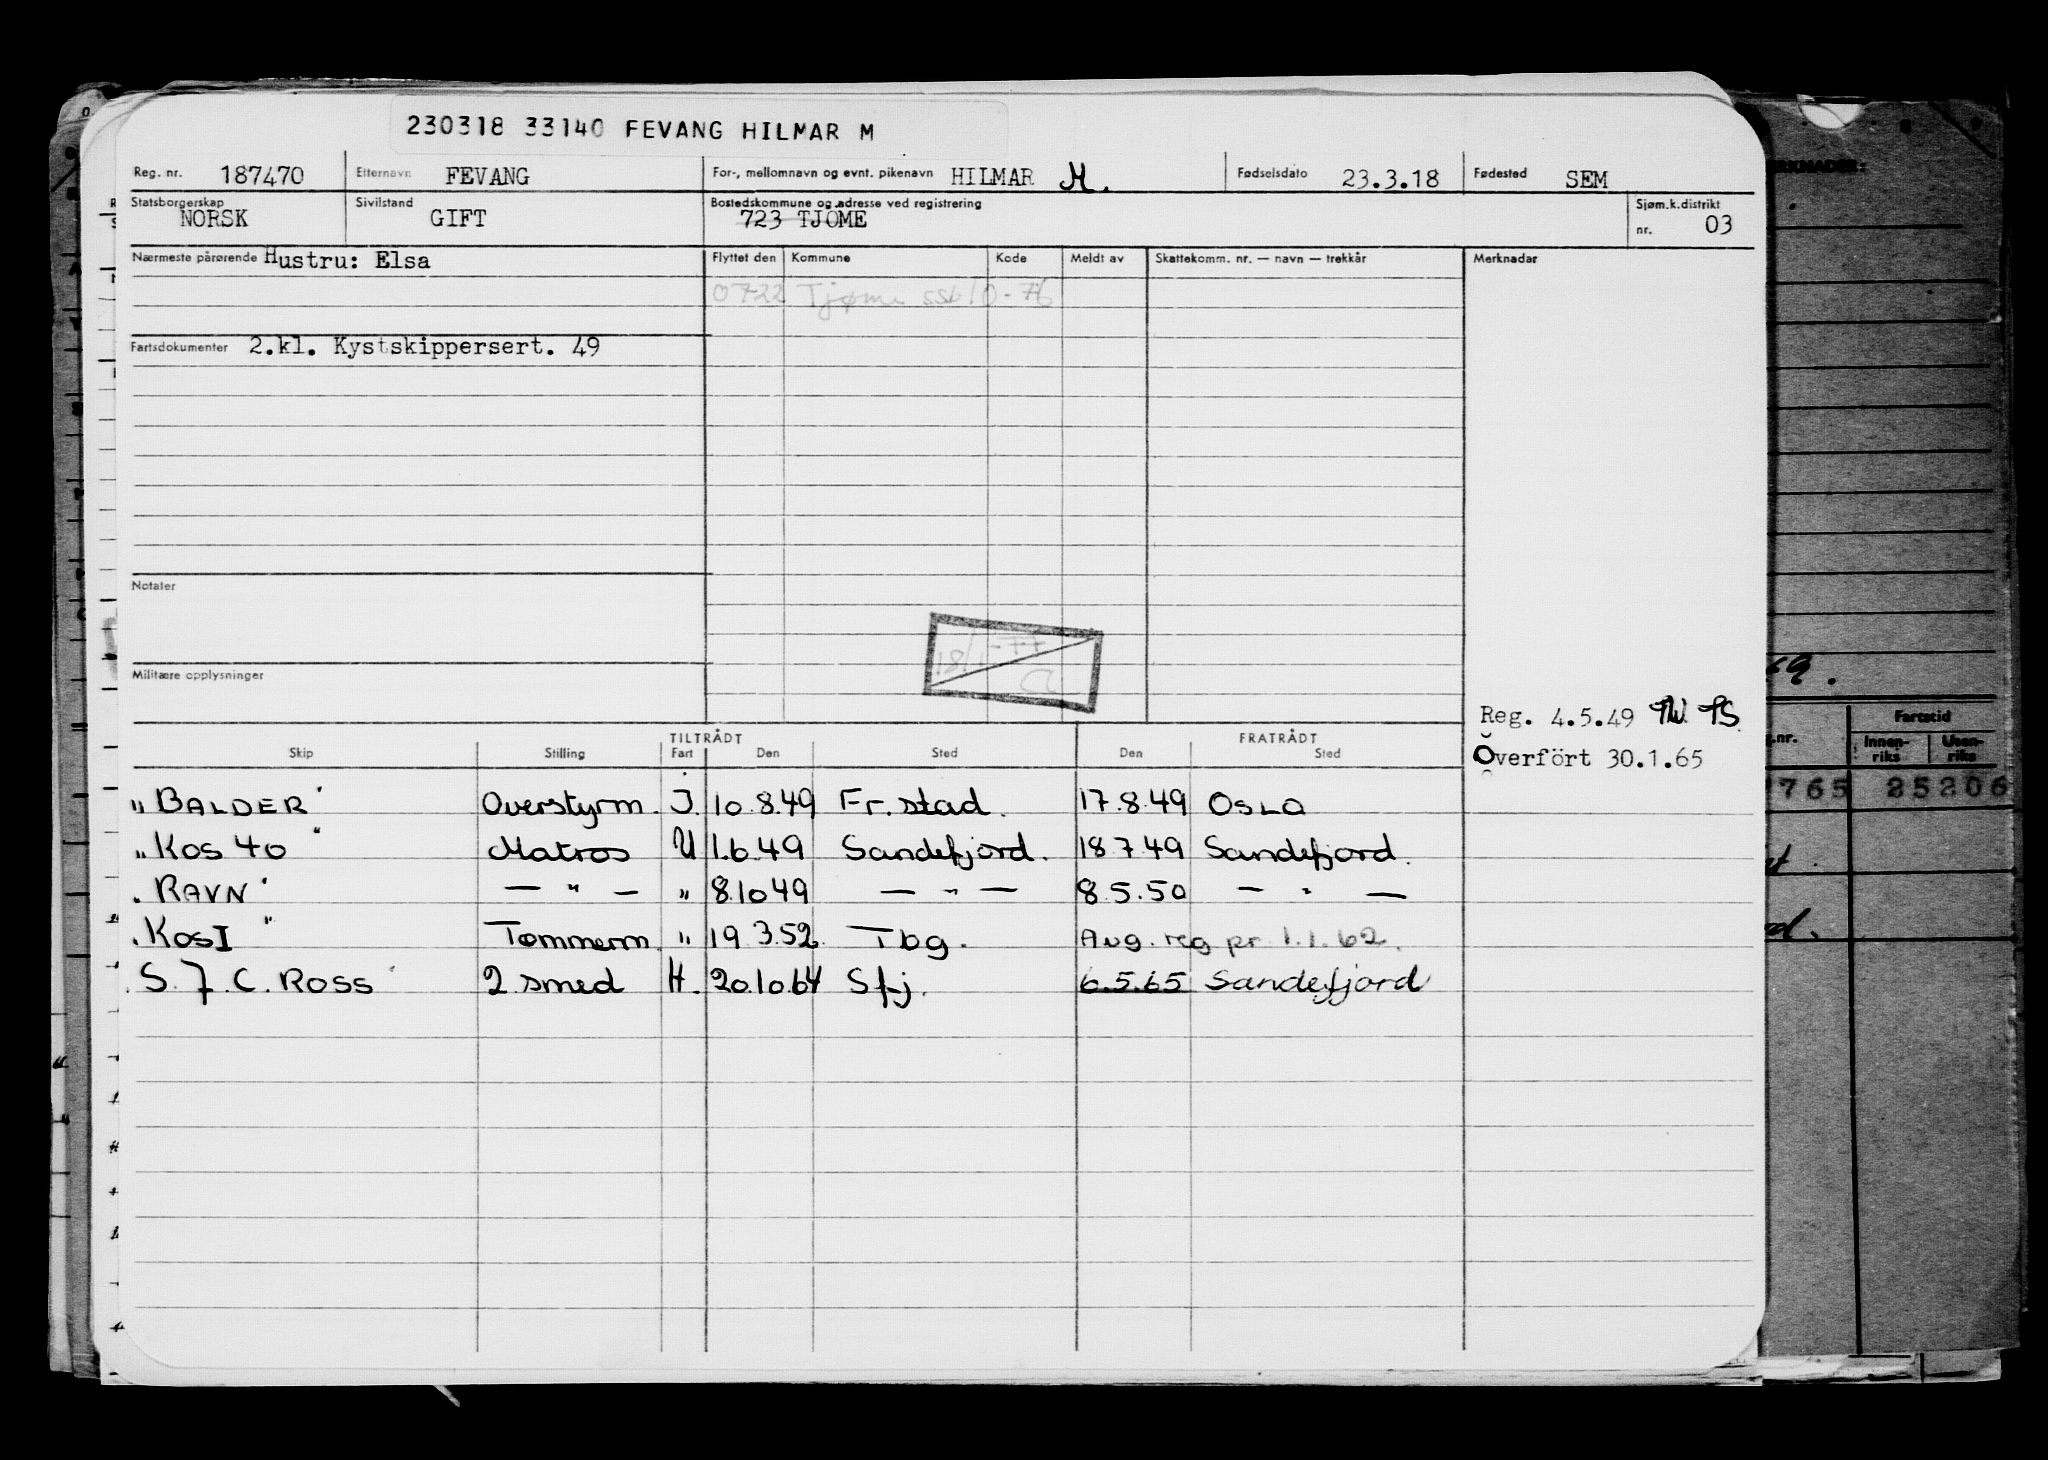 230318 33140 FEVANG HILMAR M
Reg. nr. 187470 Etternavn FEVANG For-, mellomnavn og evnt. pikenavn HILMAR M. Fødselsdato 23.3.18 Fødested SEM
Statsborgerskap NORSK Sivilstand GIFT Bostedskommune og adresse ved registrering 723 TJÖME Sjøm.k.distrikt nr. 03
Nærmeste pårørende Hustru: Elsa Flyttet den Kommune Kode Meldt av Skattekomm. nr. — navn — trekkår Merknader
0722 Tjøme ssb 10-76
Fartsdokumenter 2.kl. Kystskippersert. 49
Notater
18/1-77
Militære opplysninger
Reg. 4.5.49
TILTRÅDT FRATRÅDT
Skip Stilling Fart Den Sted Den Sted
Överfört 30.1.65
"BALDER" Overstyrm. I. 10.8.49 Fr.stad. 17.8.49 OSLO
"KOS 40" Matros U 1.6.49 Sandefjord. 18.7.49 Sandefjord.
"RAVN" — " — " 8.10.49 — " — 8.5.50 — " —
"KOS I" Tømmerm. " 19.3.52 Tbg. Avg. reg pr 1.1.62.
S. J. C. ROSS 2 smed H. 20.10.64 Sfj. 6.5.65 Sandefjord
RKNADER:
69.
Fartstid
nr. Innen-riks Uten-riks
765 25206